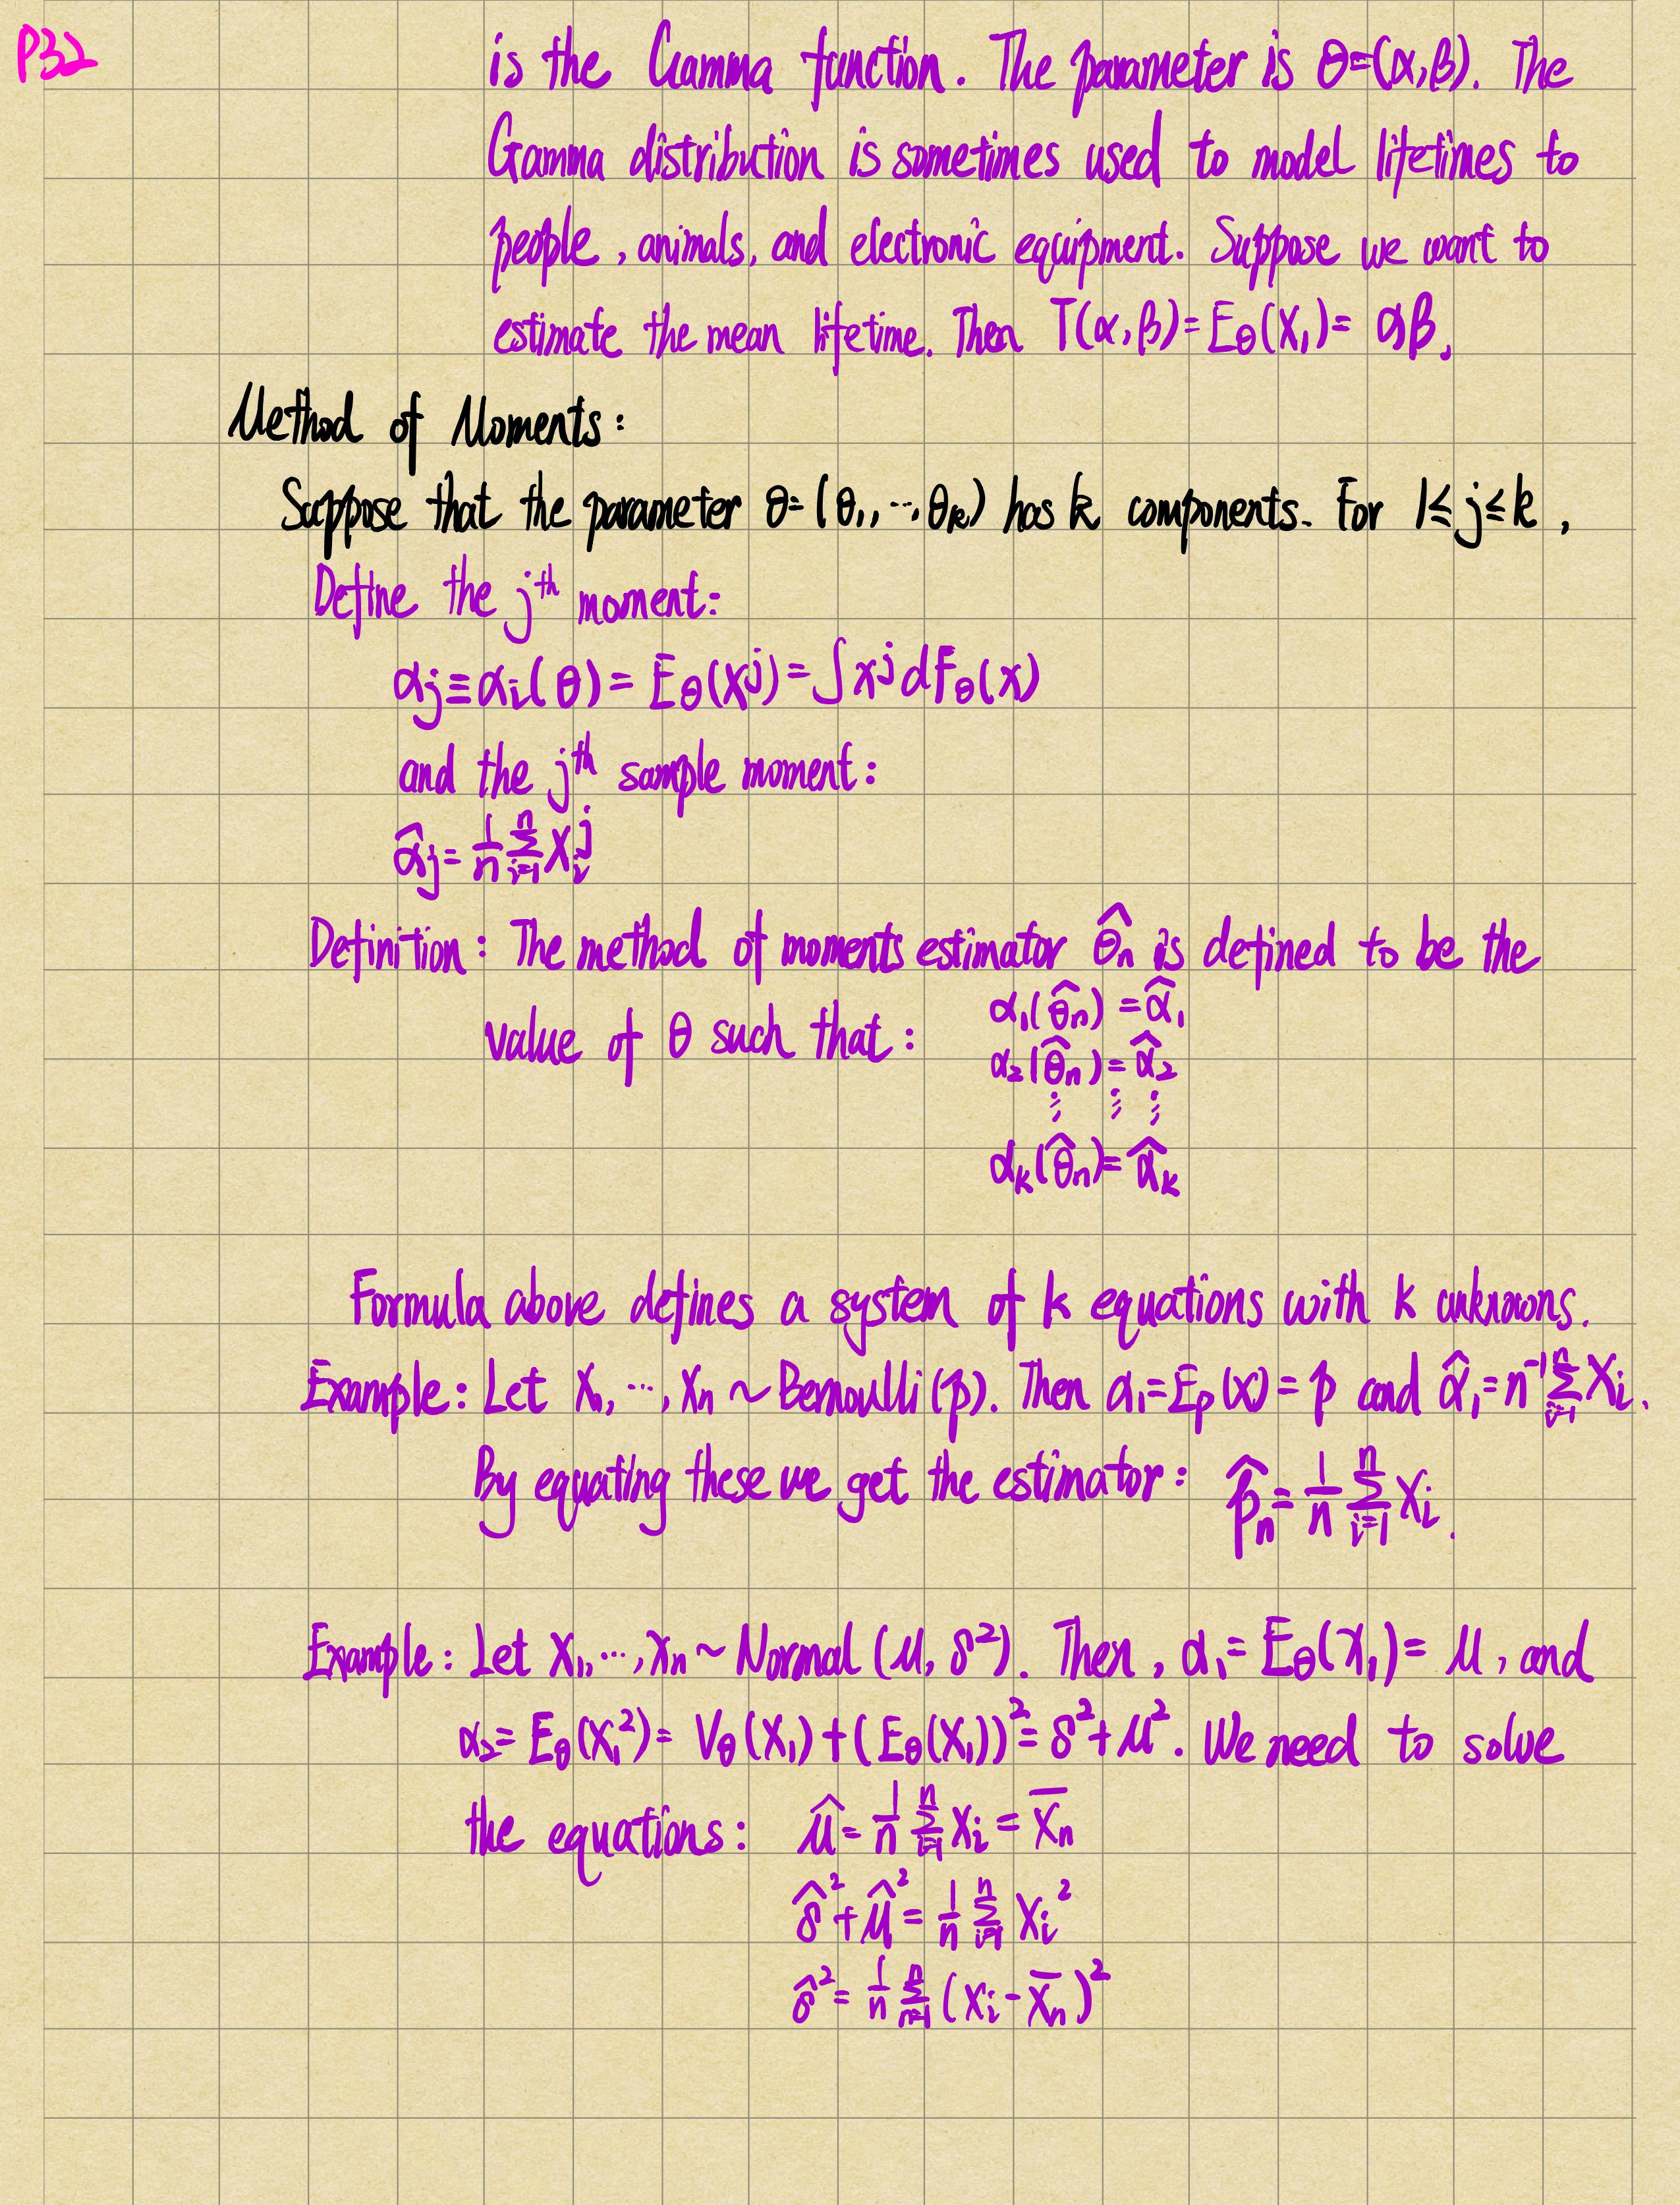 P32
is the Gamma function. The parameter is θ=(α,β). The
Gamma distribution is sometimes used to model lifetimes to
people, animals, and electronic equipment. Suppose we want to
estimate the mean lifetime. Then T(α,β)=E_θ(X₁)= αβ.
Method of Moments:
Suppose that the parameter θ=(θ₁,...,θ_k) has k components. For 1≤j≤k,
Define the j^th moment:
α_j≡α_i(θ)=E_θ(X^j)=∫x^j dF_θ(x)
and the j^th sample moment:
α̂_j=1/n Σ_{i=1}^n X_i^j
Definition: The method of moments estimator θ̂_n is defined to be the
value of θ such that:
α₁(θ̂_n)=α̂₁
α₂(θ̂_n)=α̂₂
⋮ ⋮ ⋮
α_k(θ̂_n)=α̂_k
Formula above defines a system of k equations with k unknowns.
Example: Let X₁,...,X_n ~ Bernoulli(p). Then α₁=E_p(X)=p and α̂₁=n^{-1} Σ_{i=1}^n X_i.
By equating these we get the estimator: p̂_n=1/n Σ_{i=1}^n X_i.
Example: Let X₁,...,X_n ~ Normal(μ,δ²). Then, α₁=E_θ(X₁)=μ, and
α₂=E_θ(X₁²)=V_θ(X₁)+(E_θ(X₁))²=δ²+μ². We need to solve
the equations: μ̂=1/n Σ_{i=1}^n X_i=X̄_n
δ̂²+μ̂²=1/n Σ_{i=1}^n X_i²
δ̂²=1/n Σ_{n=1}^n (X_i-X̄_n)²